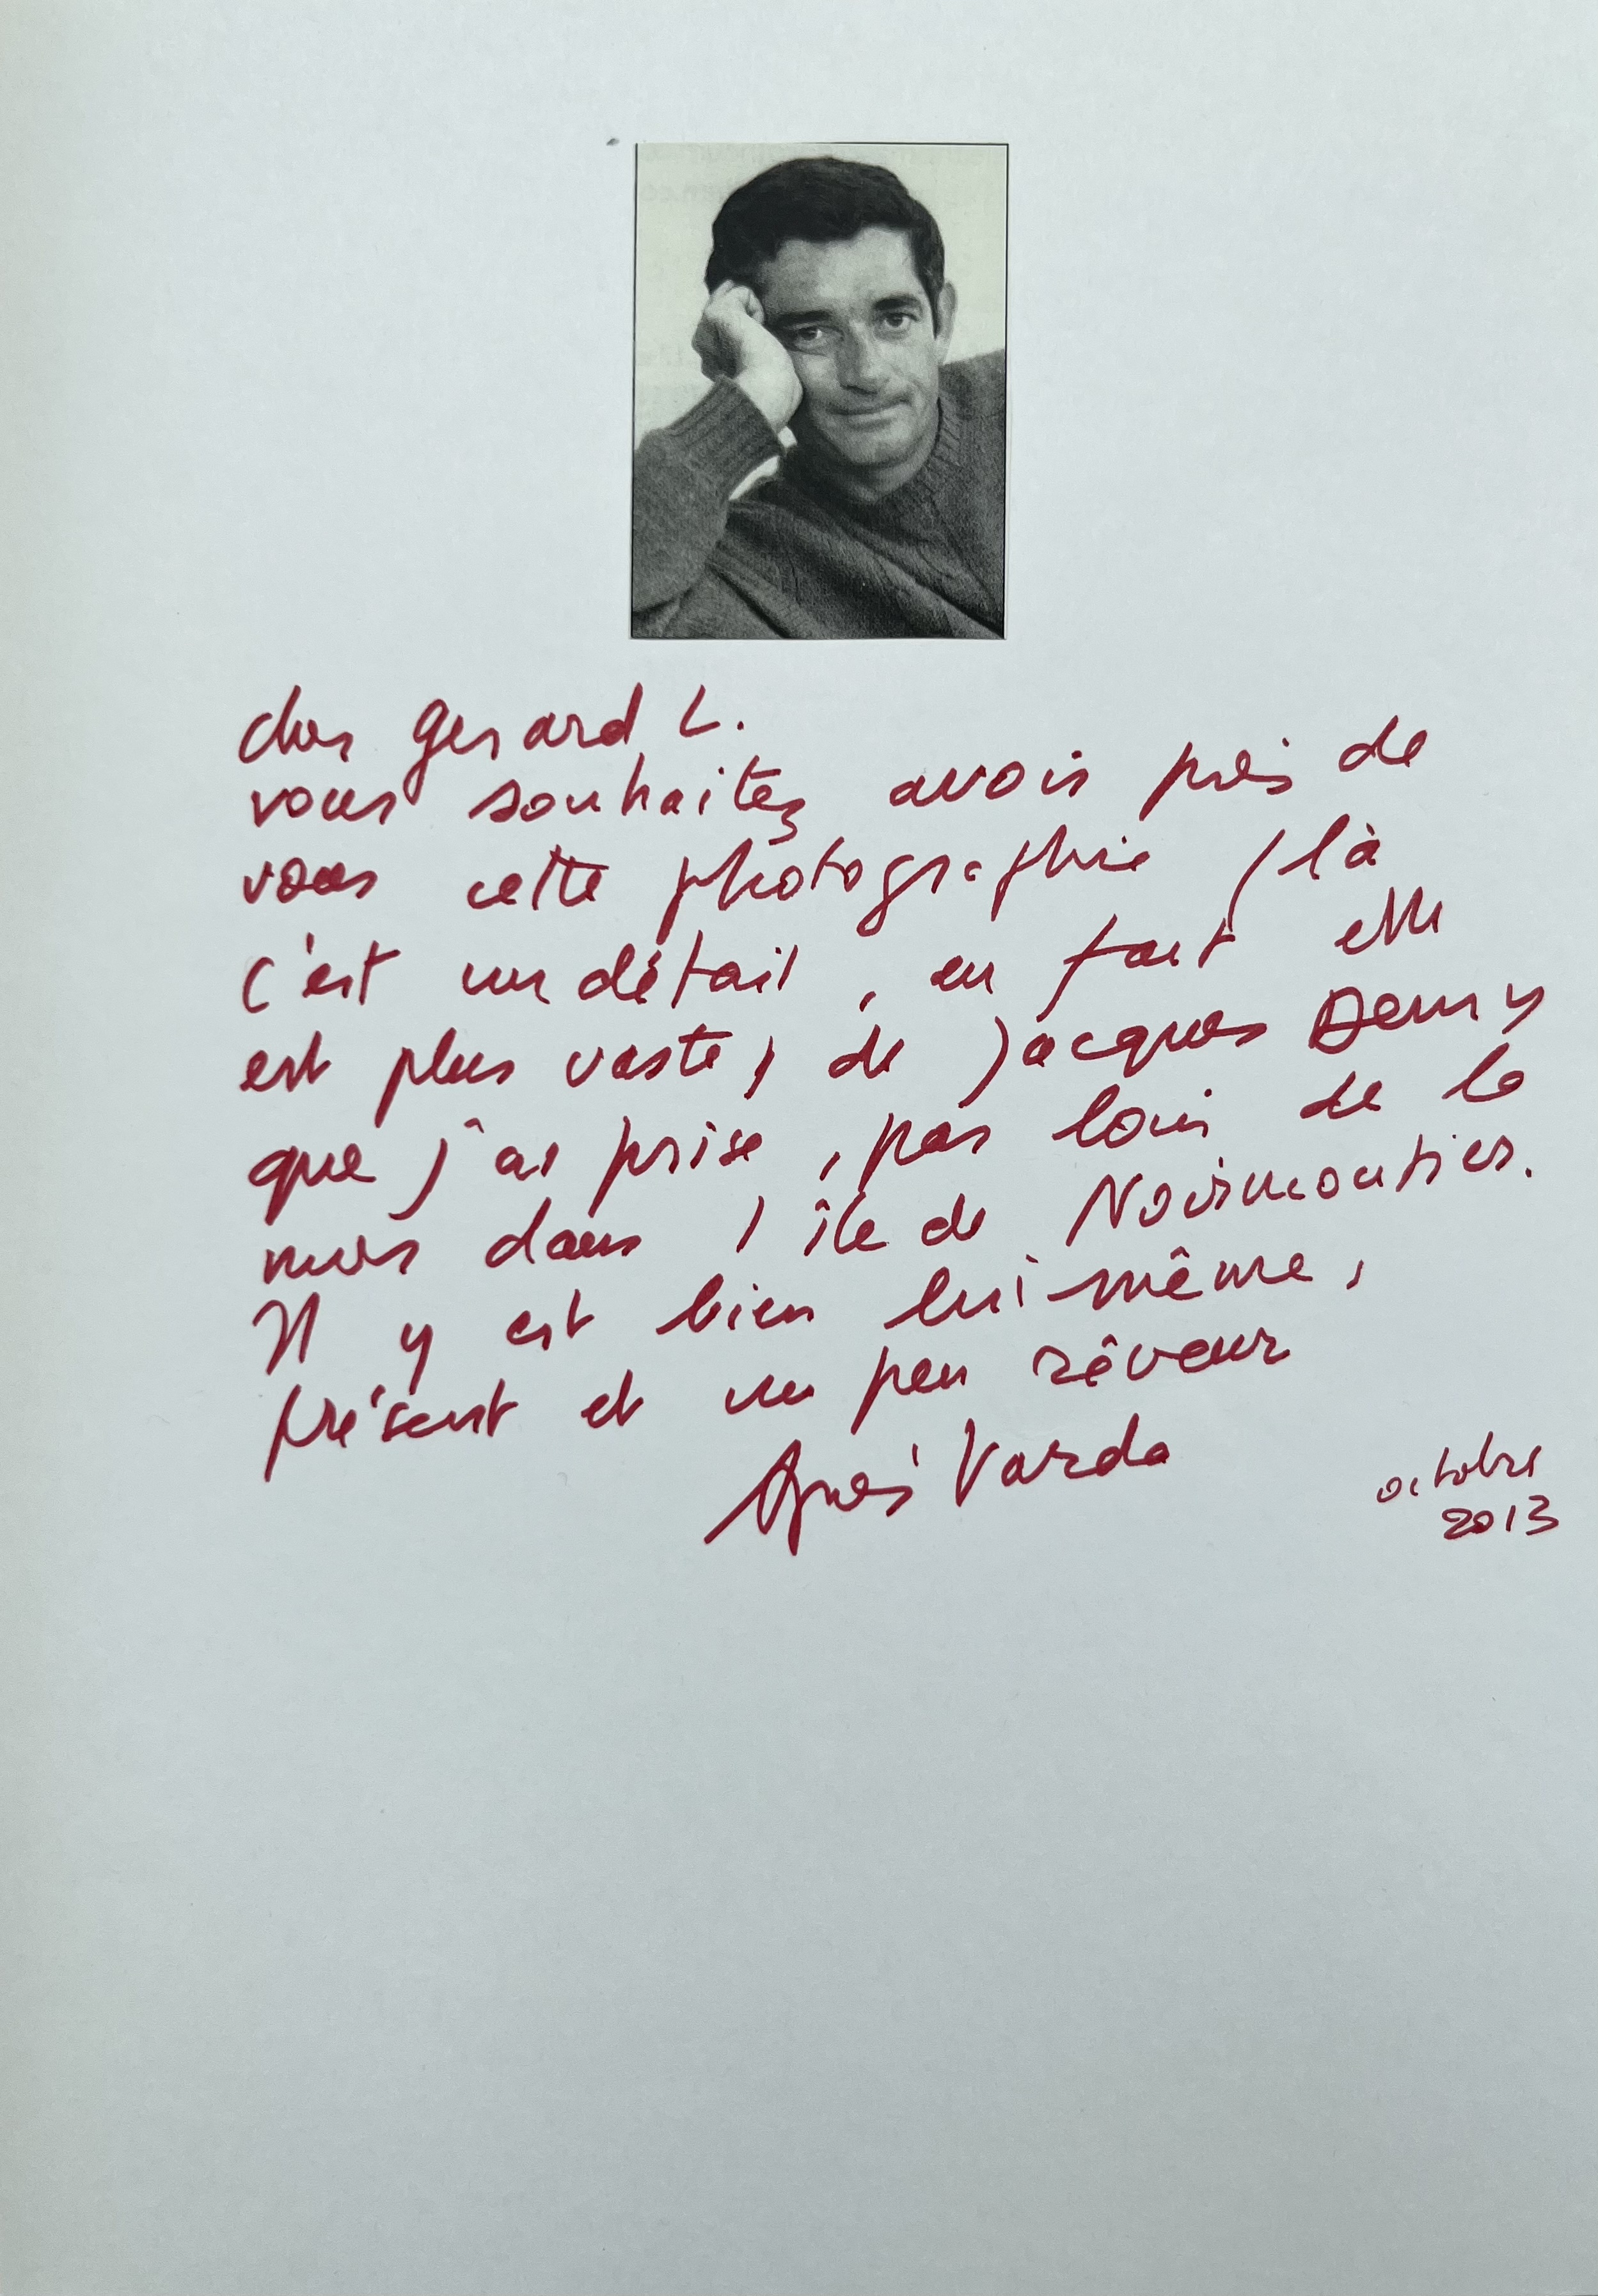 cher Gérard L.
vous souhaitez avoir près de
vous cette photographie (là
c'est un détail, en fait elle
est plus vaste) de Jacques Demy
que j'ai prise, pas loin de la
mer dans l'île de Noirmoutier.
Il y est bien lui-même,
présent et un peu rêveur
Agnès Varda
octobre
2013